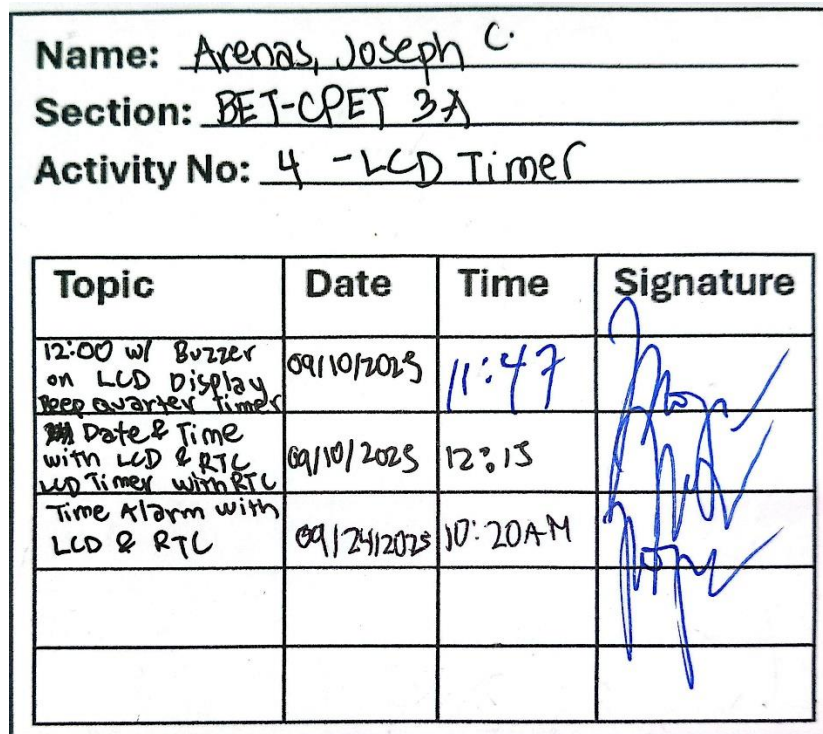 Name: Arenas, Joseph C.
Section: BET-CPET 3A
Activity No: 4 - LCD Timer
Topic Date Time Signature
12:00 w/ Buzzer
on LCD Display
Beep quarter timer
09/10/2025 11:47
Date & Time
with LCD & RTC
LCD Timer with RTC
09/10/2025 12:15
Time Alarm with
LCD & RTC
09/24/2025 10:20AM